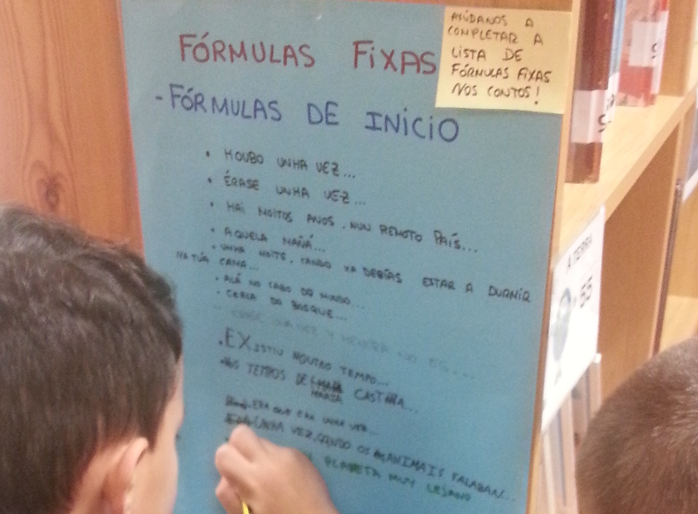 FÓRMULAS FIXAS
AXÚDANOS A
COMPLETAR A
LISTA DE
FÓRMULAS FIXAS
NOS CONTOS!
- FÓRMULAS DE INICIO
• HOUBO UNHA VEZ...
• ÉRASE UNHA VEZ...
• HAI MOITOS ANOS, NUN REMOTO PAÍS...
• AQUELA MAÑÁ...
• UNHA NOITE, CANDO XA DEBÍAS ESTAR A DURMIR
NA TÚA CAMA...
• ALÁ NO CABO DO MUNDO...
• CERCA DO BOSQUE...
• EXISTIU NOUTRO TEMPO...
• NOS TEMPOS DE MARÍA CASTAÑA...
ERA QUE ERA UNHA VEZ...
UNHA VEZ, CANDO OS ANIMAIS FALABAN...
PLANETA MUY LEJANO
A TERRA
55